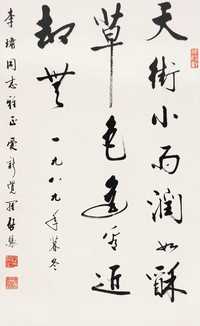 天街小雨润如酥
草色遥看近
却无 一九八九年暮冬
李靖同志雅正 爱新觉罗